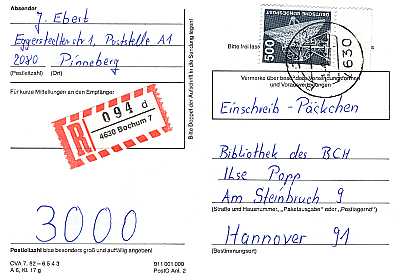 Absender
J. Ebert
Eggerstedter str 1, Poststelle A1
2080 Pinneberg
(Postleitzahl) (Ort)
Für kurze Mitteilungen an den Empfänger
Bitte Doppel der Aufschrift in die Sendung legen!
R
094 d
4630 Bochum 7
3000
Postleitzahl bitte besonders groß und auffällig angeben!
CVA 7. 82 – 6.5 4 3
A 6, Kl. 17 g
911 001 000
PostG Anl. 2
DEUTSCHE BUNDESPOST
500
4630
Bitte frei lassen
Vermerke über besondere Versendungsformen
und Vorausverfügungen
Einschreib - Päckchen
Bibliothek des BCH
Ilse Popp
Am Steinbruch 9
(Straße und Hausnummer, „Paketausgabe“ oder „Postlagernd“)
Hannover 91
(Bestimmungsort)